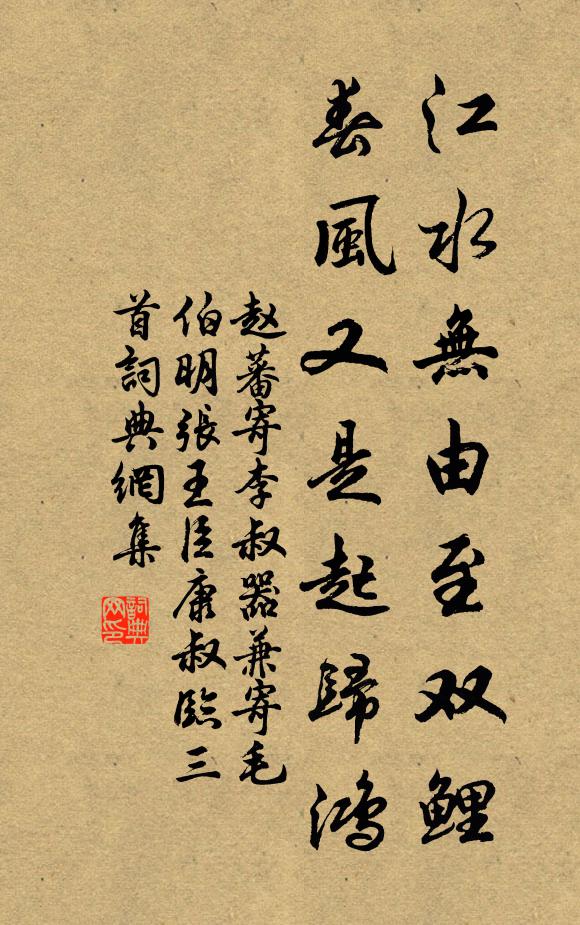 江水無由至双鲤
春風又是起歸鴻
赵蕃寄李叔器兼寄毛
伯明張王臣康叔臨三
首詞典網集
詞典
网印